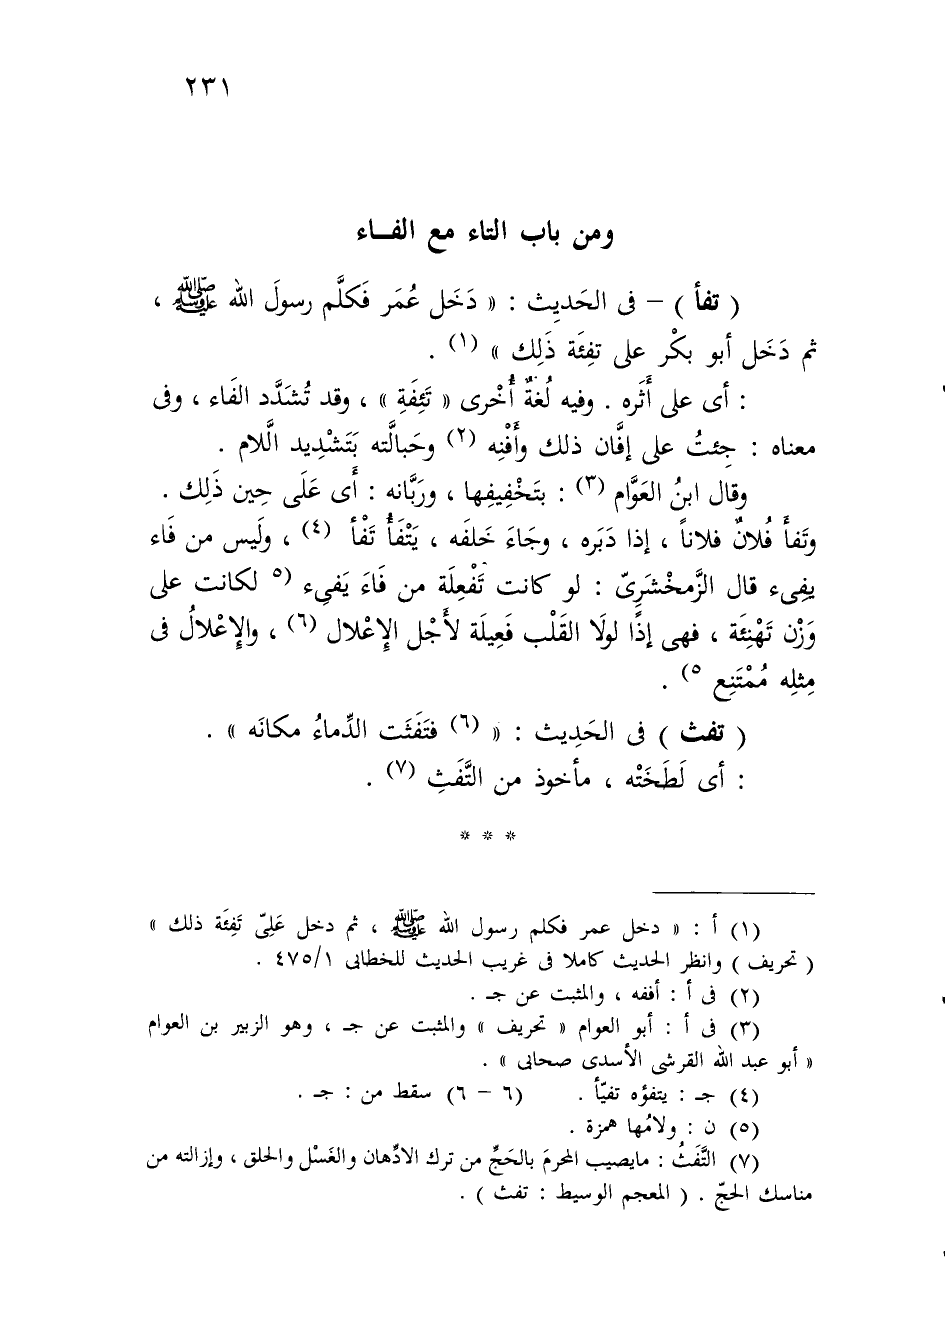 ٢٣١
ومن باب التاء مع الفــاء
( تفأ ) – فى الحَدِيث : « دَخَل عُمَر فَكلَّم رسولَ الله ﷺ ،
ثم دَخَل أبو بكْر على تفِئَة ذَلِك » (١) .
: أى على أَثَره . وفيه لُغةٌ أُخْرى « تَئِفَةِ » ، وقد تُشَدَّد الفَاء ، وفى
معناه : جِئتُ على إفَّان ذلك وأَفْنِه (٢) وحَبالَّته بَتَشْدِيد الَّلام .
وقال ابنُ العَوَّام (٣) : بتَخْفِيفِها ، ورَبَّانه : أَى عَلَى حِين ذَلِك .
وتَفأَ فُلانٌ فلاناً ، إذا دَبَره ، وجَاءَ خَلفَه ، يَتْفَأُ تَفْأ (٤) ، ولَيس من فَاء
يفِىء قال الزَّمخْشَرِىّ : لو كانت تَفْعِلَة من فَاءَ يَفىِء (٥ لكانت على
وَزْن تَهْنِئَة ، فهى إذًا لولَا القَلْب فَعِيلَة لأَجْل الإِعْلال (٦) ، والإِعْلالُ فى
مِثلِه مُمْتَنِع ٥) .
( تفث ) فى الحَدِيث : « (٦) فتَفَثَت الدِّماءُ مكانَه » .
: أى لَطَخَتْه ، مأخوذ من التَّفَثِ (٧) .
* * *
(١) أ : « دخل عمر فكلم رسول الله ﷺ ، ثم دخل عَلِىّ تَفِئَة ذلك »
( تحريف ) وانظر الحديث كاملا فى غريب الحديث للخطابى ٤٧٥/١ .
(٢) فى أ : أففه ، والمثبت عن جـ .
(٣) فى أ : أبو العوام « تحريف » والمثبت عن جـ ، وهو الزبير بن العوام
« أبو عبد الله القرشى الأسدى صحابى » .
(٤) جـ : يتفؤه تفيّأ . (٦ – ٦) سقط من : جـ .
(٥) ن : ولامُها همزة .
(٧) التَّفَثُ : مايصيب المحرمَ بالحَجِّ من ترك الادِّهان والغَسْل والحلق ، وإزالته من
مناسك الحجّ . ( المعجم الوسيط : تفث ) .